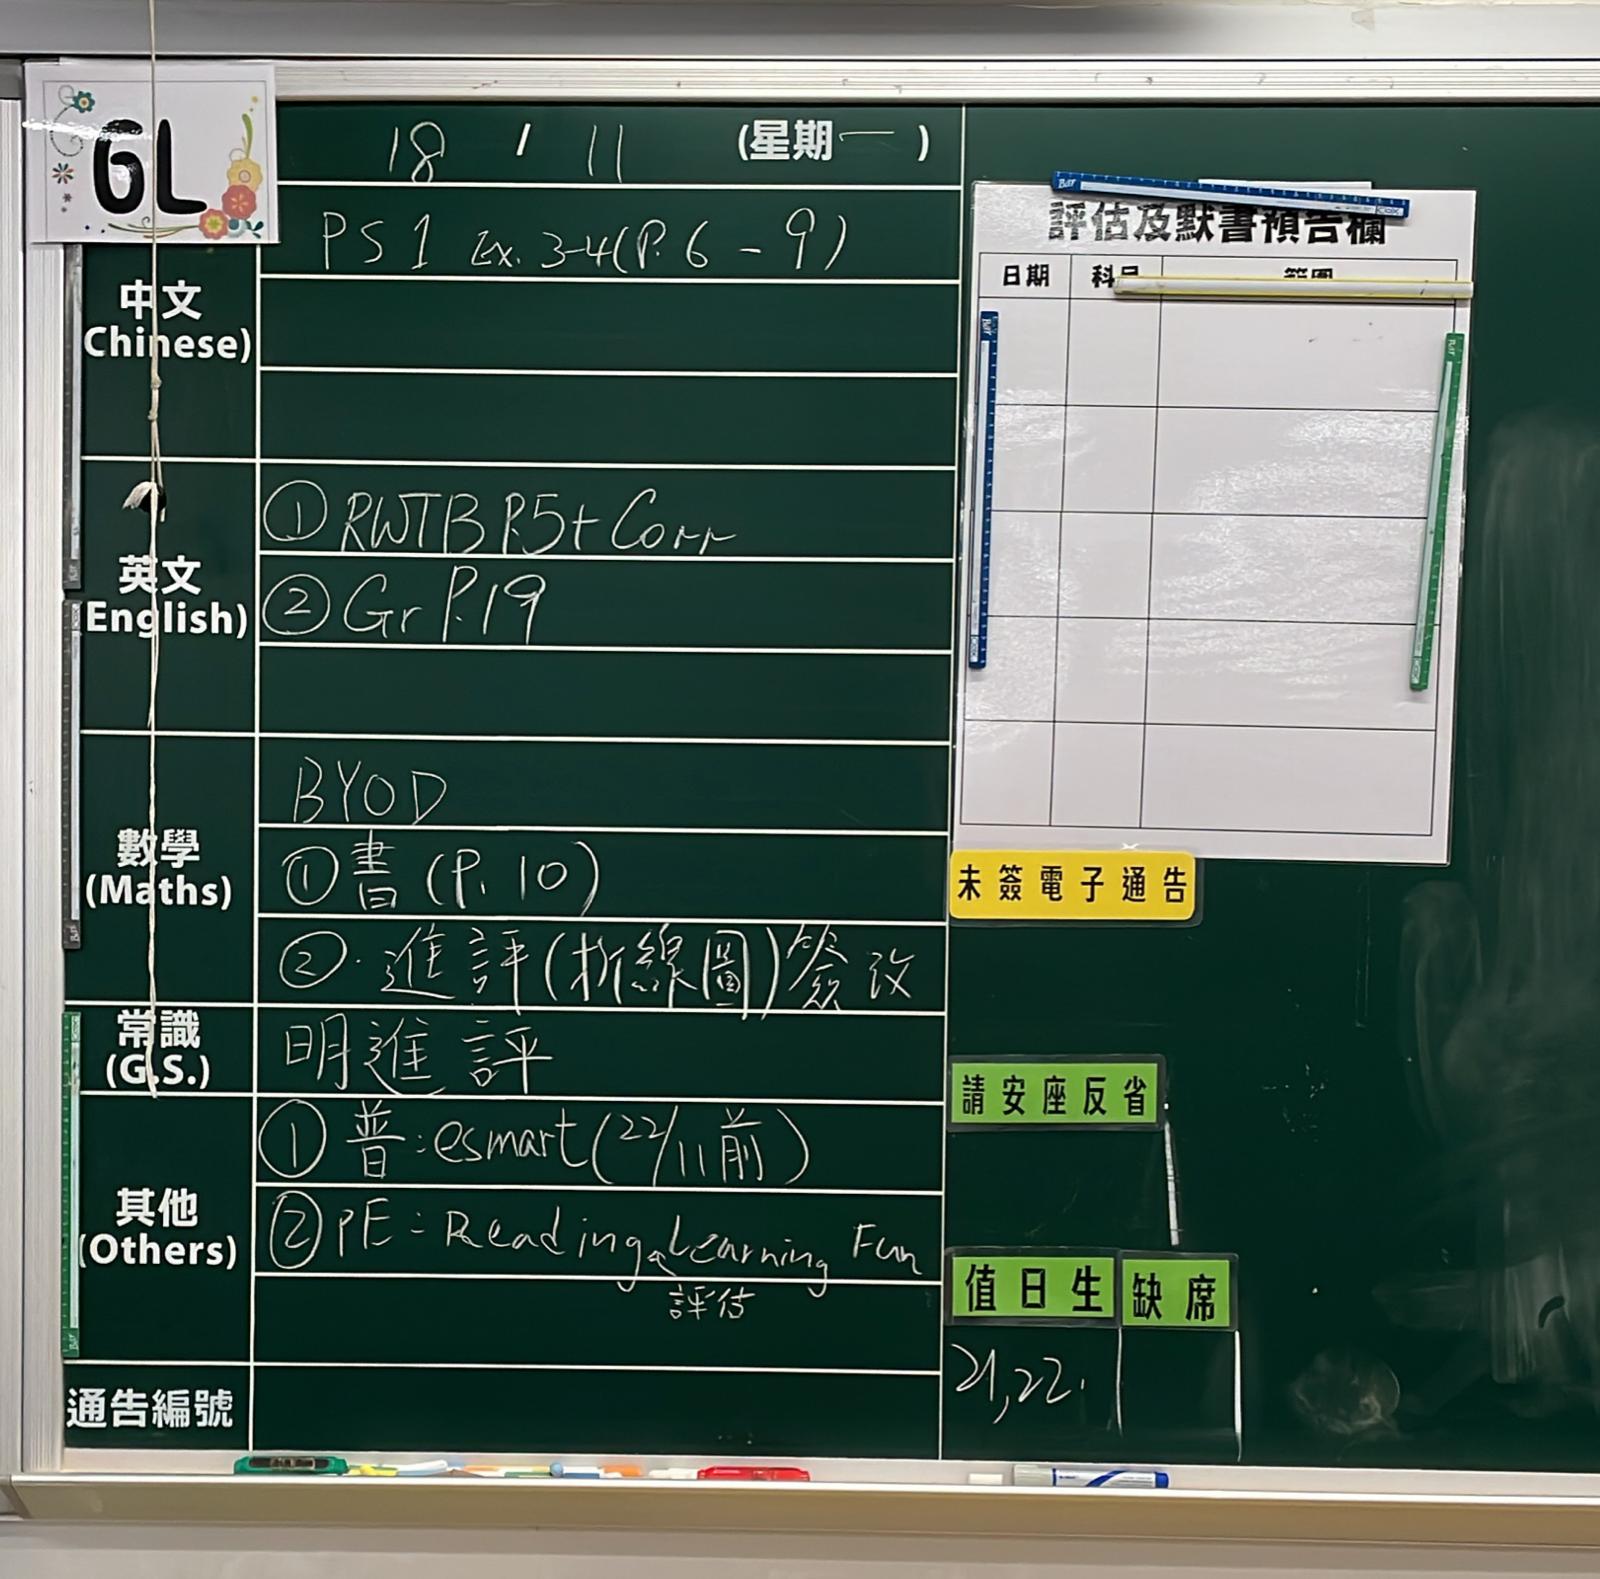 6L
18 / 11 (星期一)
PS1 Ex. 3-4(P. 6 - 9)
中文
(Chinese)
英文
(English)
① RWTB P.5 + Corr
② Gr P.19
數學
(Maths)
BYOD
① 書 (P. 10)
② 進評(折線圖)簽改
常識
(G.S.)
明進評
其他
(Others)
① 普：esmart(22/11前)
② PE：Reading & Learning Fun
評估
通告編號
評估及默書預告欄
日期 科目 範圍
未簽電子通告
請安座反省
值日生 缺席
21,22.